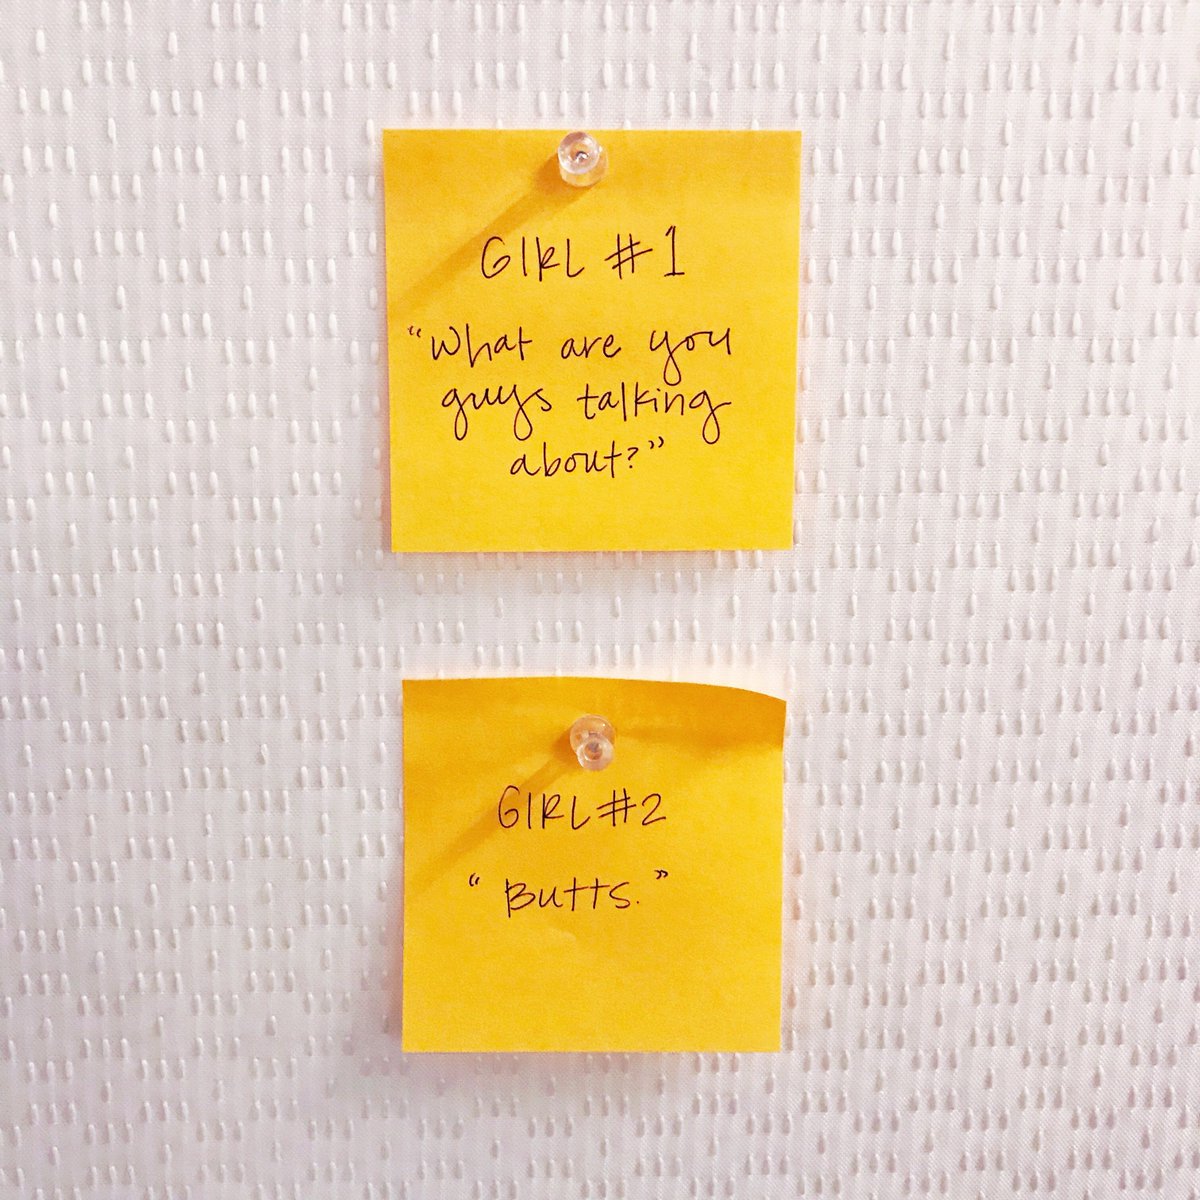 GIRL #1
"What are you
guys talking
about?"
GIRL #2
"Butts."